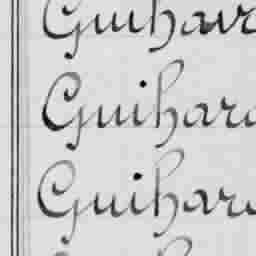 Guihar
Guihard
Guihard